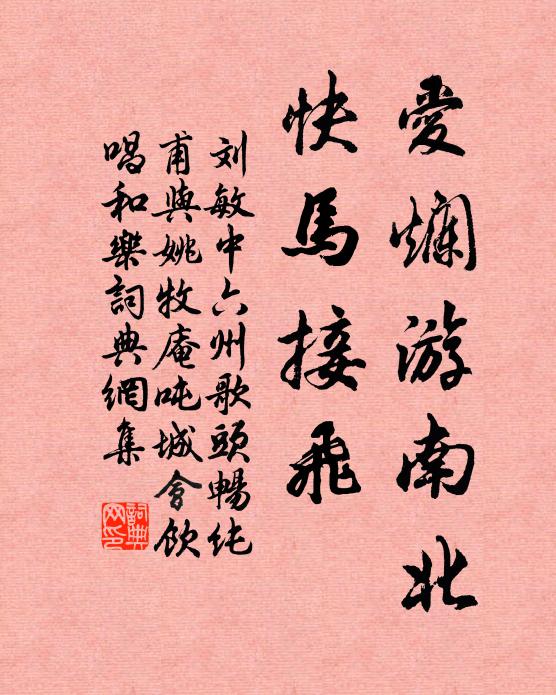 愛爛游南北
快馬接飛
刘敏中六州歌頭暢纯
甫與姚牧庵吨城會飲
唱和樂詞典網集
詞典
网印